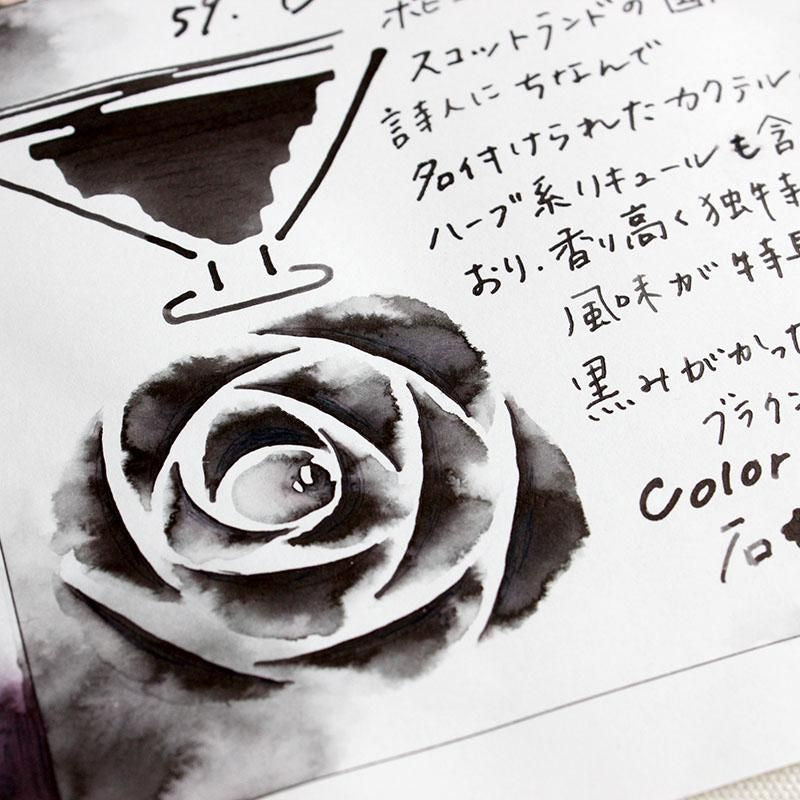 59.
ボビー
スコットランドの国
詩人にちなんで
名付けられたカクテル
ハーブ系リキュールも含
おり、香り高く独特
風味が特
黒みがかった
ブラウン
Color
石